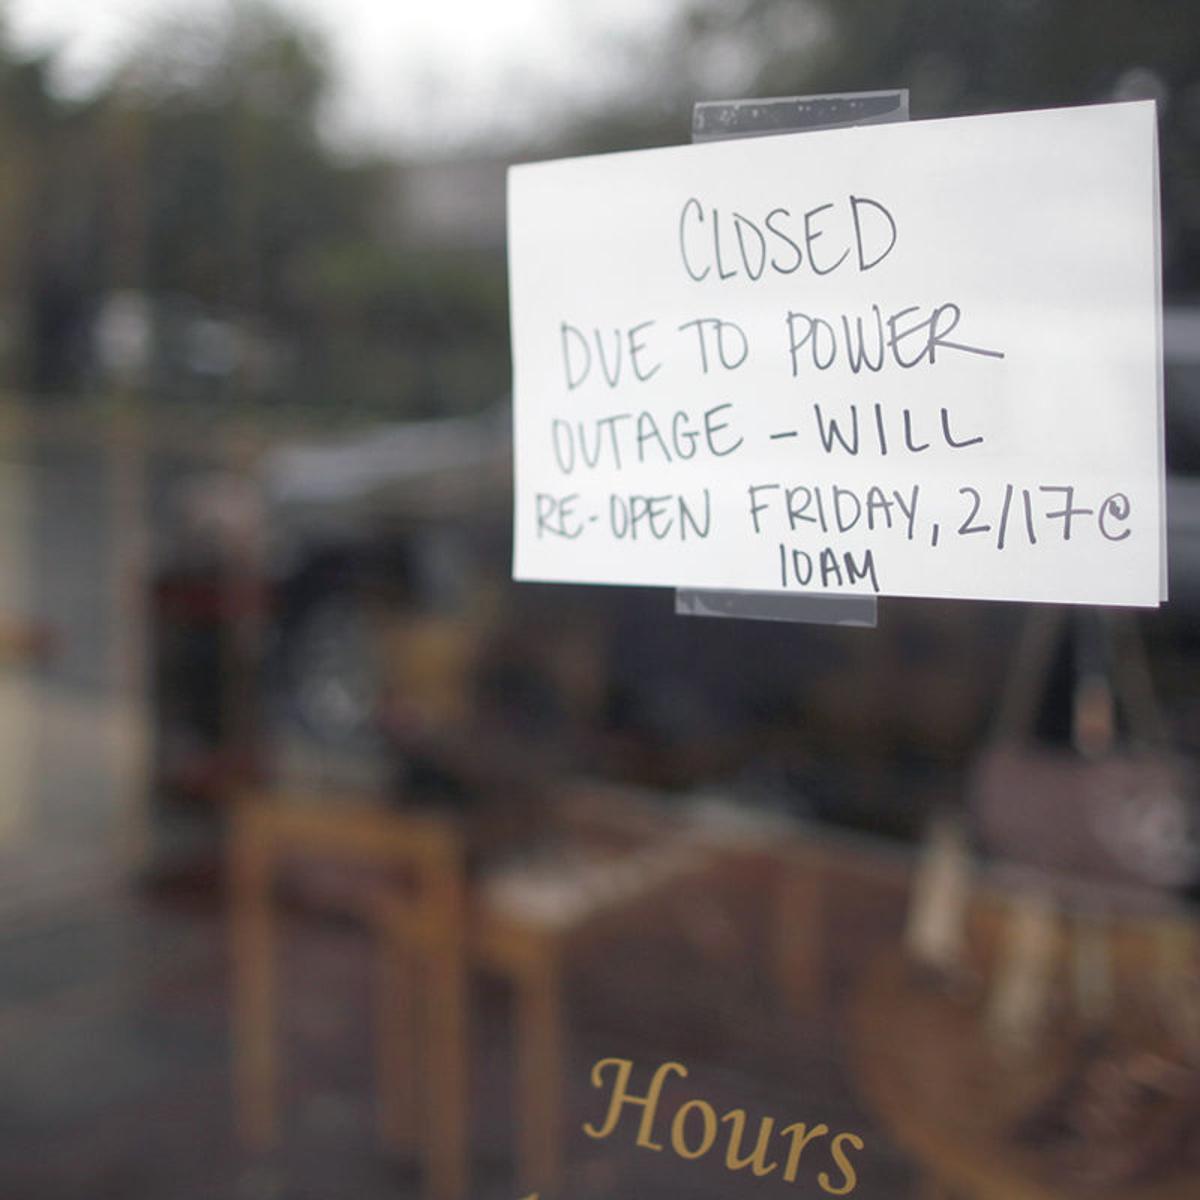 CLOSED
DUE TO POWER
OUTAGE - WILL
RE-OPEN FRIDAY, 2/17 @
10AM
Hours